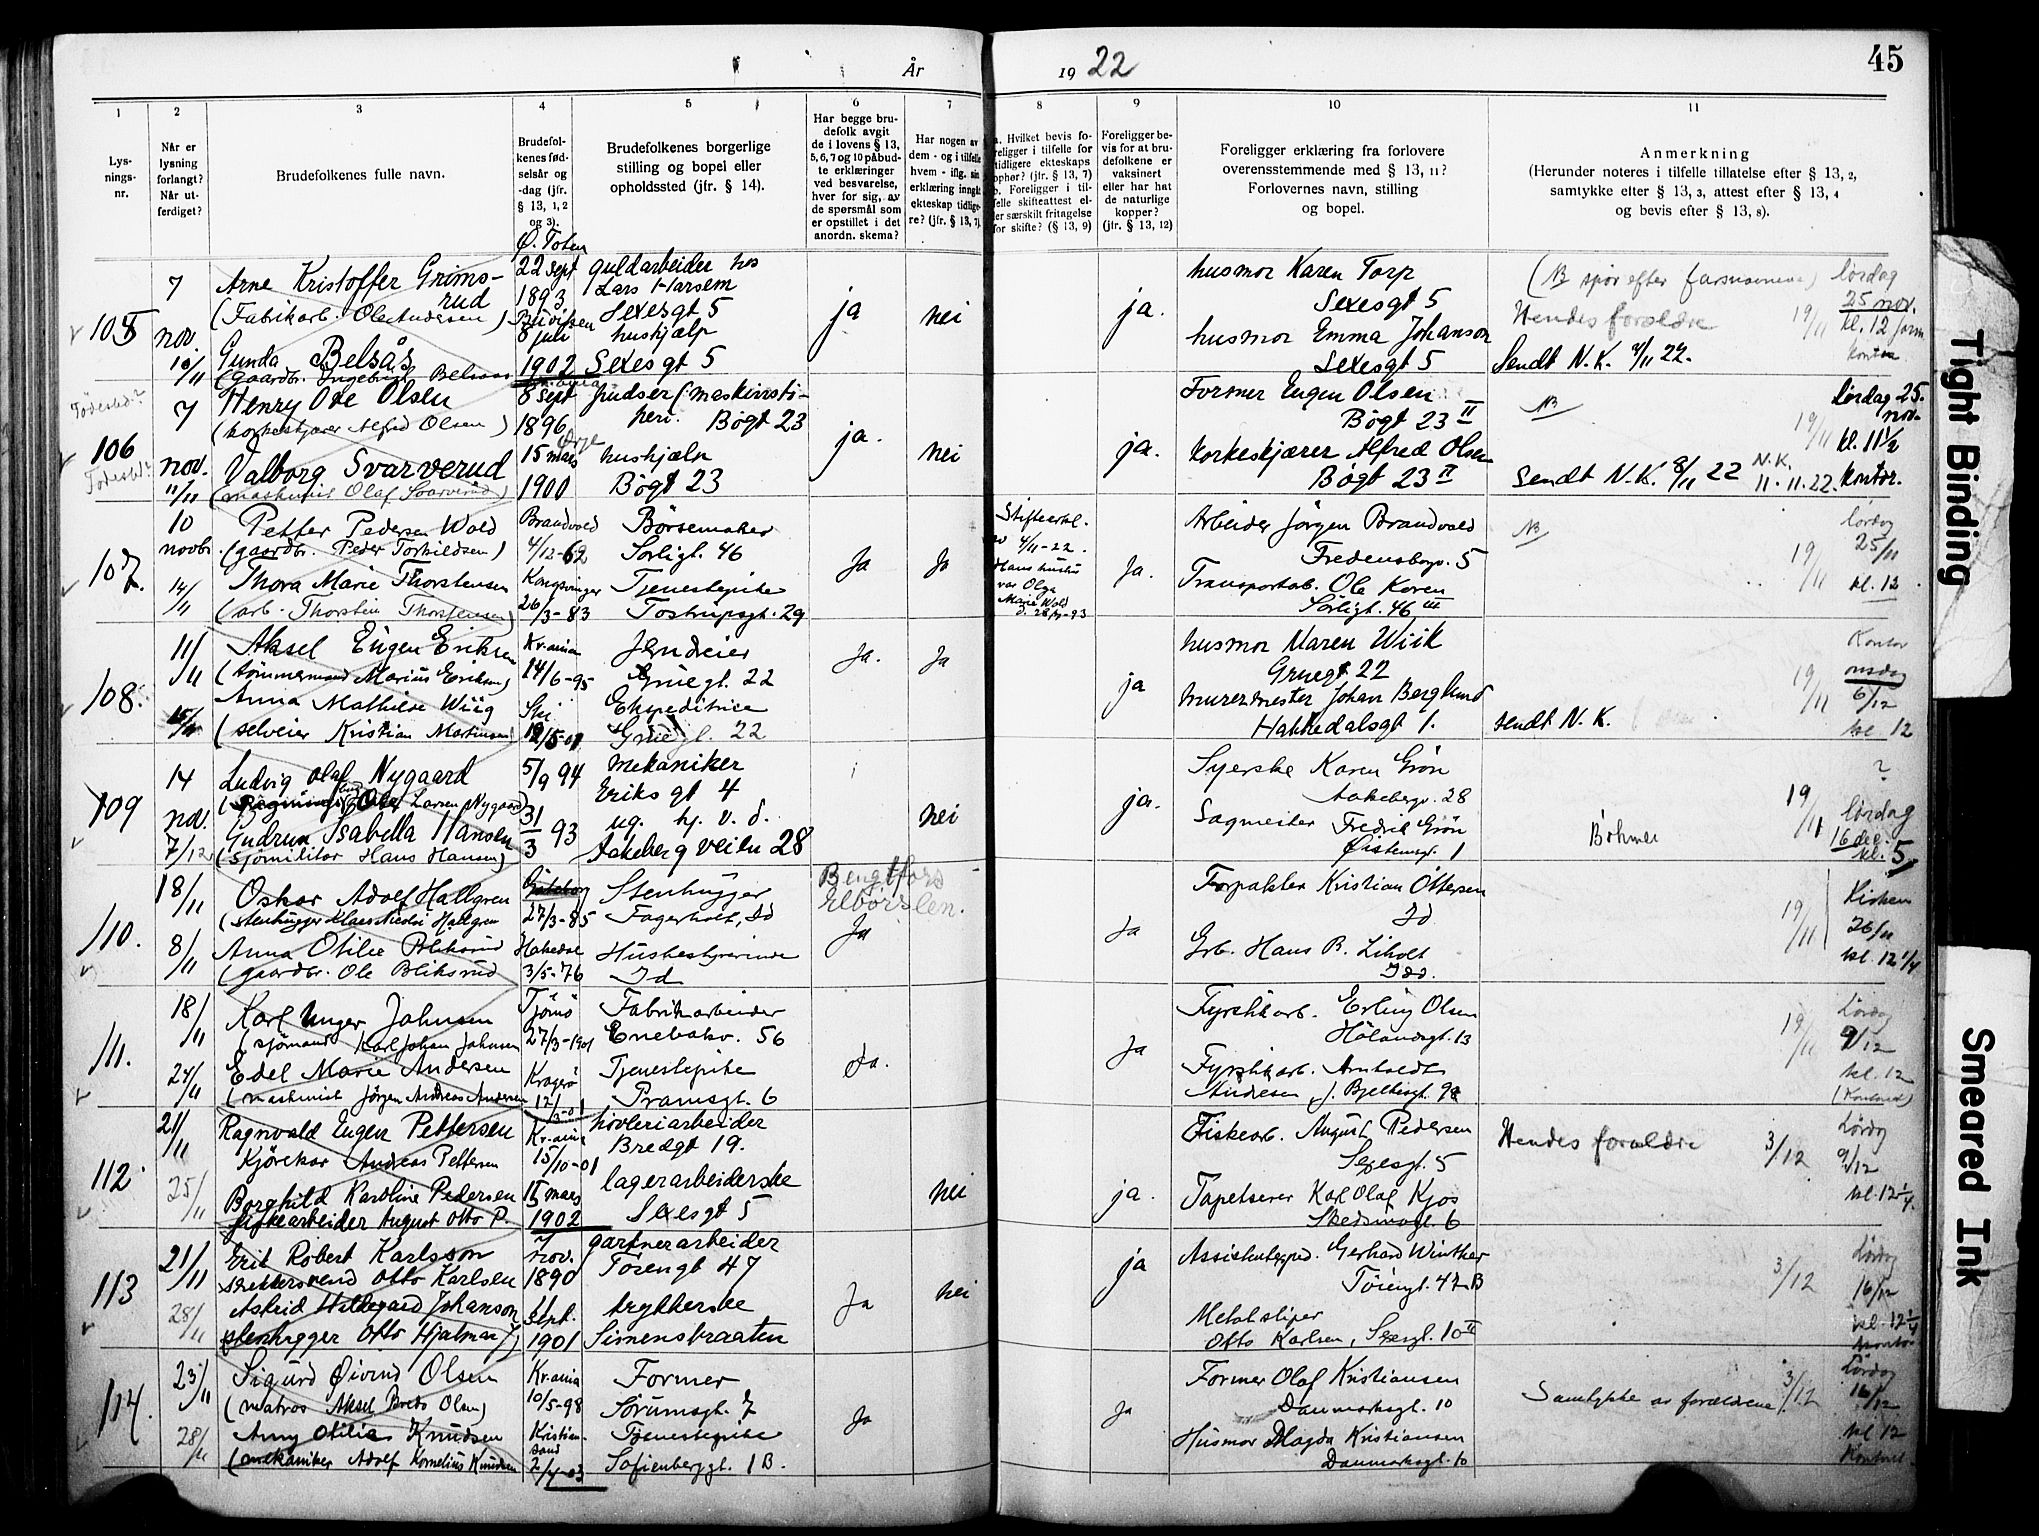 År
19 22
45
1
2
3
4
5
6
7
8
9
10
11
Lys-
nings-
nr.
Når er
lysning
forlangt?
Når ut-
ferdiget?
Brudefolkenes fulle navn.
Brudefol-
kenes fød-
selsår og
-dag (jfr.
§ 13, 1, 2
og 3).
Brudefolkenes borgerlige
stilling og bopel eller
opholdssted (jfr. § 14).
Har begge bru-
defolk avgit
de i lovens § 13,
5, 6, 7 og 10 påbud-
te erklæringer
ved besvarelse,
hver for sig, av
de spørsmål som
er opstillet i det
anordn. skema?
Har nogen av
dem - og i tilfelle
hvem - iflg. sin
erklæring inngått
ekteskap tidlige-
re? (jfr. § 13, 7)
a. Hvilket bevis fo-
religger i tilfelle for
tidligere ekteskaps
ophør? (jfr. § 13, 7)
b. Foreligger i til-
felle skifteattest el-
ler særskilt fritagelse
for skifte? (§ 13, 9)
Foreligger be-
vis for at bru-
defolkene er
vaksinert
eller har hat
de naturlige
kopper?
(jfr. § 13, 12)
Foreligger erklæring fra forlovere
overensstemmende med § 13, 11?
Forlovernes navn, stilling
og bopel.
Anmerkning
(Herunder noteres i tilfelle tillatelse efter § 13, 2,
samtykke efter § 13, 3, attest efter § 13, 4
og bevis efter § 13, 8).
105
7
nov.
10/11
Arne Kristoffer Grims-
rud
(Fabrikarb. Ole Andersen)
Gunda Belsås
(gaardbr. Ingebrigt Belsaas
Ø. Toten
22 sept
1893
8 juli
1902
guldarbeider hos
Lars Larsen
Sexesgt 5
hushjælp
Sexesgt 5
ja
nei
ja.
husmor Karen Torp
Sexesgt 5
husmor Emma Johanson
Sexesgt 5
(NB spør efter farsnavnene)
Hendes forældre
Sendt N.K. 9/11 22.
19/11
lørdag
25 nov.
kl. 12 form
kontor
Fødested?
106
Fødested?
7
nov.
11/11
Henry Ove Olsen
(korkeskjærer Alfred Olsen)
Valborg Svarverud
(maskinist Olaf Svarverud)
8 sept
1896
Ørje
15 mars
1900
pudser (maskinsti-
heri. Bögt 23
hushjælp
Bögt 23
ja.
nei
ja.
Former Eugen Olsen
Bögt 23 II
Korkeskjærer Alfred Olsen
Bögt 23 II
NB
Sendt N.K. 8/11 22
N.K.
11.11.22.
19/11
Lørdag 25.
nov.
kl. 11½
kontor.
107.
10
novbr.
14/11
Petter Pedersen Wold
(gaardbr. Peder Torkildsen)
Thora Marie Thorstensen
(arb. Thorstein Thorstensen)
Brandvold
4/12-62
Kongsvinger
26/3-83
Börsemaker
Sorligt. 46
Tjenestepike
Tostrupsgt. 29
Ja
Ja
Skifteerkl.
4/11-22.
Hans hustru
var Olga
Marie Wold
Ja.
Arbeider Jörgen Brandvold
Fredensborgv. 5
Transportarb. Ole Koren
Sorligt. 46 III
NB
19/11
lørdag
25/11
kl. 12
108.
11/11
15/11
Aksel Eugen Eriksen
(tömmermand Marius Eriksen)
Anna Mathilde Wiig
(selveier Kristian Martinsen)
Kr.ania
14/6-95
Ski
Jerndreier
Gruegt. 22
Ekspeditrice
Gruegt. 22
Ja.
Ja
ja
husmor Maren Wiik
Gruegt 22
murermester Johan Berglund
Hakkedalsgt 1.
sendt N.K.
19/11
Kontor
onsdag
6/12
kl 12
109
14
nov.
7/12
Ludvig Olaf Nygaard
Gudrun Isabella Hansen
(Sjömilitær Hans Hansen)
5/9 94
31/3 93
mekaniker
Eriks gt 4
ug. hj. v. d.
Aakeberg veien 28
nei
ja.
Syerske Karen Grön
Aakebergv. 28
Sagmester Fredrik Grön
Øistensgt 1
Böhmer
19/11
?
lördag
16 des.
kl. 5
110.
18/11
8/11
Oskar Adolf Hallgren
(stenhugger Klaes Nicolai Hallgren
Anna Otilie Bliksrud
(gaardbr. Ole Bliksrud
Göteborg
27/3-85
3/5-76
Stenhugger
Fagerholt, Id
Husbestyrerinde
Id
Bengtsfors
Elborslen.
Ja
Ja
Forpakter Kristian Ottersen
Id
Grb. Hans B. Liholt
Idd.
19/11
Kirken
26/11
kl. 12 1/4
111.
18/11
24/11
Karl Unger Johnsen
(sjömand Karl Johan Johnsen
Edel Marie Andersen
(maskinist Jörgen Andreas Andersen
Tjömö
27/3-1901
Kragerö
12/3-01
Fabrikarbeider
Enebakv. 56
Tjenestepike
Pramsgt. 6
Ja.
Ja
Fyrstikarb. Erling Olsen
Hölandsgt. 13
Fyrstikarb. Arnholdt
Andresen, J. Bjelkesgt. 98
19/11
Lørdag
9/12
kl. 12
(Kontoret)
112
21/11
25/11
Ragnvald Eugen Pettersen
Kjörekar Andreas Pettersen
Borghild Karoline Pedersen
fiskearbeider August Otto P.
Kr.ania
15/10-01
15 mars
1902
hövleriarbeider
Bredgt 19.
lagerarbeiderske
Sexesgt 5
nei
ja.
Fiskearb. August Pedersen
Sexesgt. 5
Tapetserer Karl Olaf Kjos
Skedsmogt. 6
Hendes forældre
3/12
Lördag
9/12
kl. 12 1/4.
113
21/11
28/11
Erik Robert Karlsson
skreddersvend Otto Karlsen
Astrid Hildegard Johanson
stenhugger Otto Hjalmar J)
nov.
1890
sept.
1901
gartnerarbeider
Töiengt 47
trykkerske
Simensbraaten
Ja
nei
ja
Gerhard Winther
Töiengt. 47 B
Metalsliper
Otto Karlsen, Sexesgt. 10 II
3/12
Lördag
16/12
kl. 12 1/4
kontor
114.
23/11
28/11
Sigurd Øivind Olsen
(matros Aksel Bredo Olsen)
Anny Otilie Knudsen
(mekaniker Adolf Kornelius Knudsen
Kr.ania
10/5-98
Kristian-
sand
2/4-03
Former
Sörumsgt. 7
Tjenestepike
Sofienberggt. 1 B.
Ja
Ja
Former Olaf Kristiansen
Danmarksgt. 10
Husmor Magda Kristiansen
Danmarksgt. 10
Samtykke av forældrene
3/12
Lördag
16/12
kl 12
Kontoret
Tight Binding
Smeared Ink